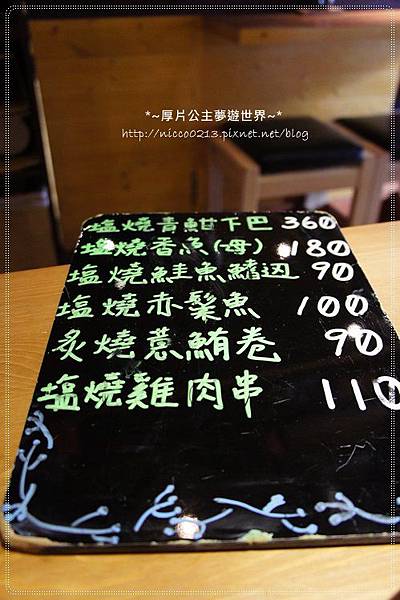 *~厚片公主夢遊世界~*
http://nicco0213.pixnet.net/blog
塩燒青魽下巴 360
塩燒香魚(母) 180
塩燒鮭魚鰭边 90
塩燒赤鬃魚 100
炙燒薏鮪卷 90
塩燒雞肉串 110